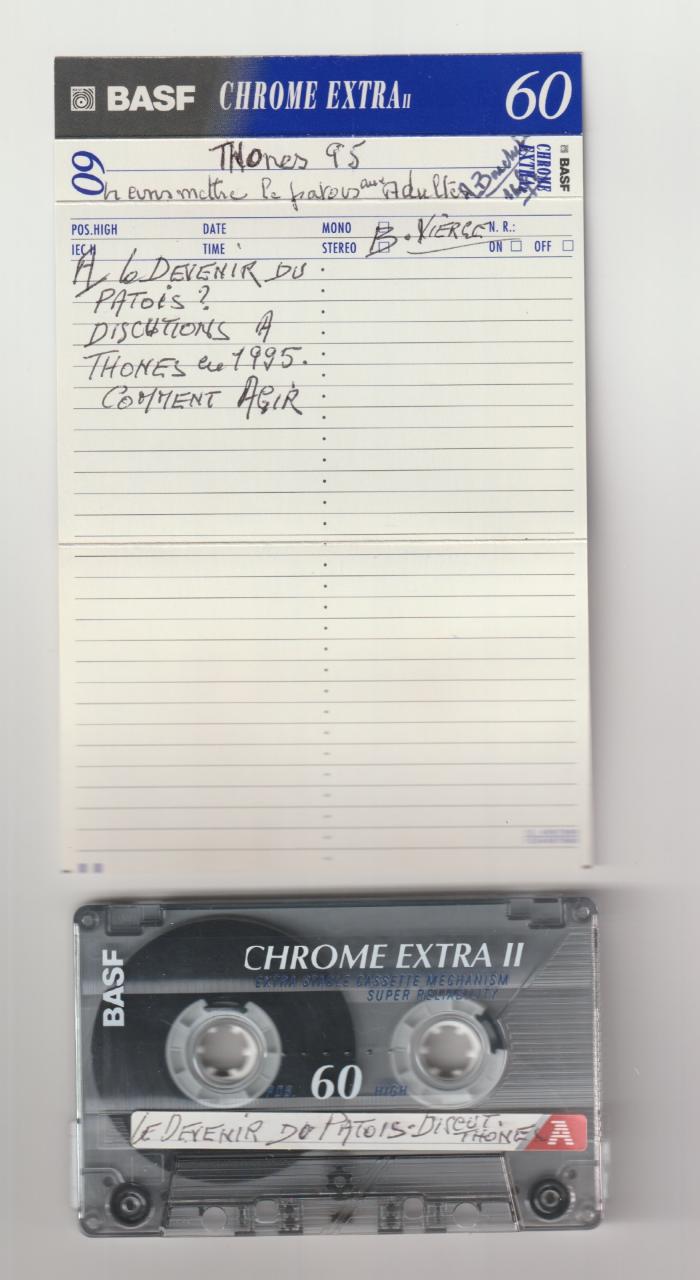 BASF CHROME EXTRA II 60
60 THONES 95
transmettre le patois aux Adultes
CHROME EXTRA II BASF
POS.HIGH DATE MONO B. VIERGE N. R.:
IEC II TIME STEREO ON OFF
A le DEVENIR DU
PATOIS ?
DISCUTIONS A
THONES en 1995.
COMMENT AGIR
BASF
CHROME EXTRA II
EXTRA STABLE CASSETTE MECHANISM
SUPER RELIABILITY
POS. 60 HIGH
LE DEVENIR DU PATOIS-DISCUT.
THONES A